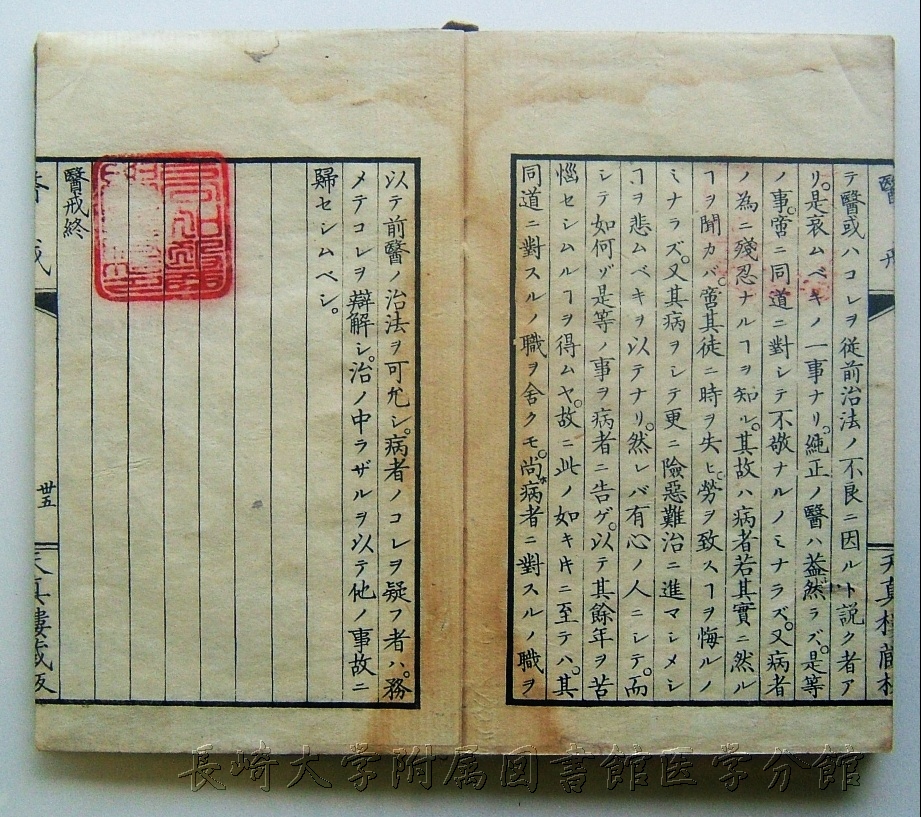 テ醫或ハコレヲ従前治法ノ不良ニ因ルト説ク者ア
リ。是哀ムベキノ一事ナリ。純正ノ醫ハ葢然ラズ。是等
ノ事。啻ニ同道ニ對シテ不敬ナルノミナラズ。又病者
ノ為ニ殘忍ナルヿヲ知ル。其故ハ病者若其實ニ然ル
ヿヲ聞カバ。啻其徒ニ時ヲ失ヒ。勞ヲ致スヿヲ悔ルノ
ミナラズ。又其病ヲシテ更ニ險惡難治ニ進マシメシ
ヿヲ悲ムベキヲ以テナリ。然レバ有心ノ人ニシテ。而
シテ如何ゾ是等ノ事ヲ病者ニ告ゲ。以テ其餘年ヲ苦
惱セシムルヿヲ得ムヤ。故ニ此ノ如キ𪜈ニ至テハ。其
同道ニ對スルノ職ヲ舎クモ。尚ホ病者ニ對スルノ職ヲ
以テ前醫ノ治法ヲ可允シ。病者ノコレヲ疑フ者ハ。務
メテコレヲ辯解シ。治ノ中ラザルヲ以テ他ノ事故ニ
歸セシムベシ。
醫戒終
丗五
長崎大学附属図書館医学分館